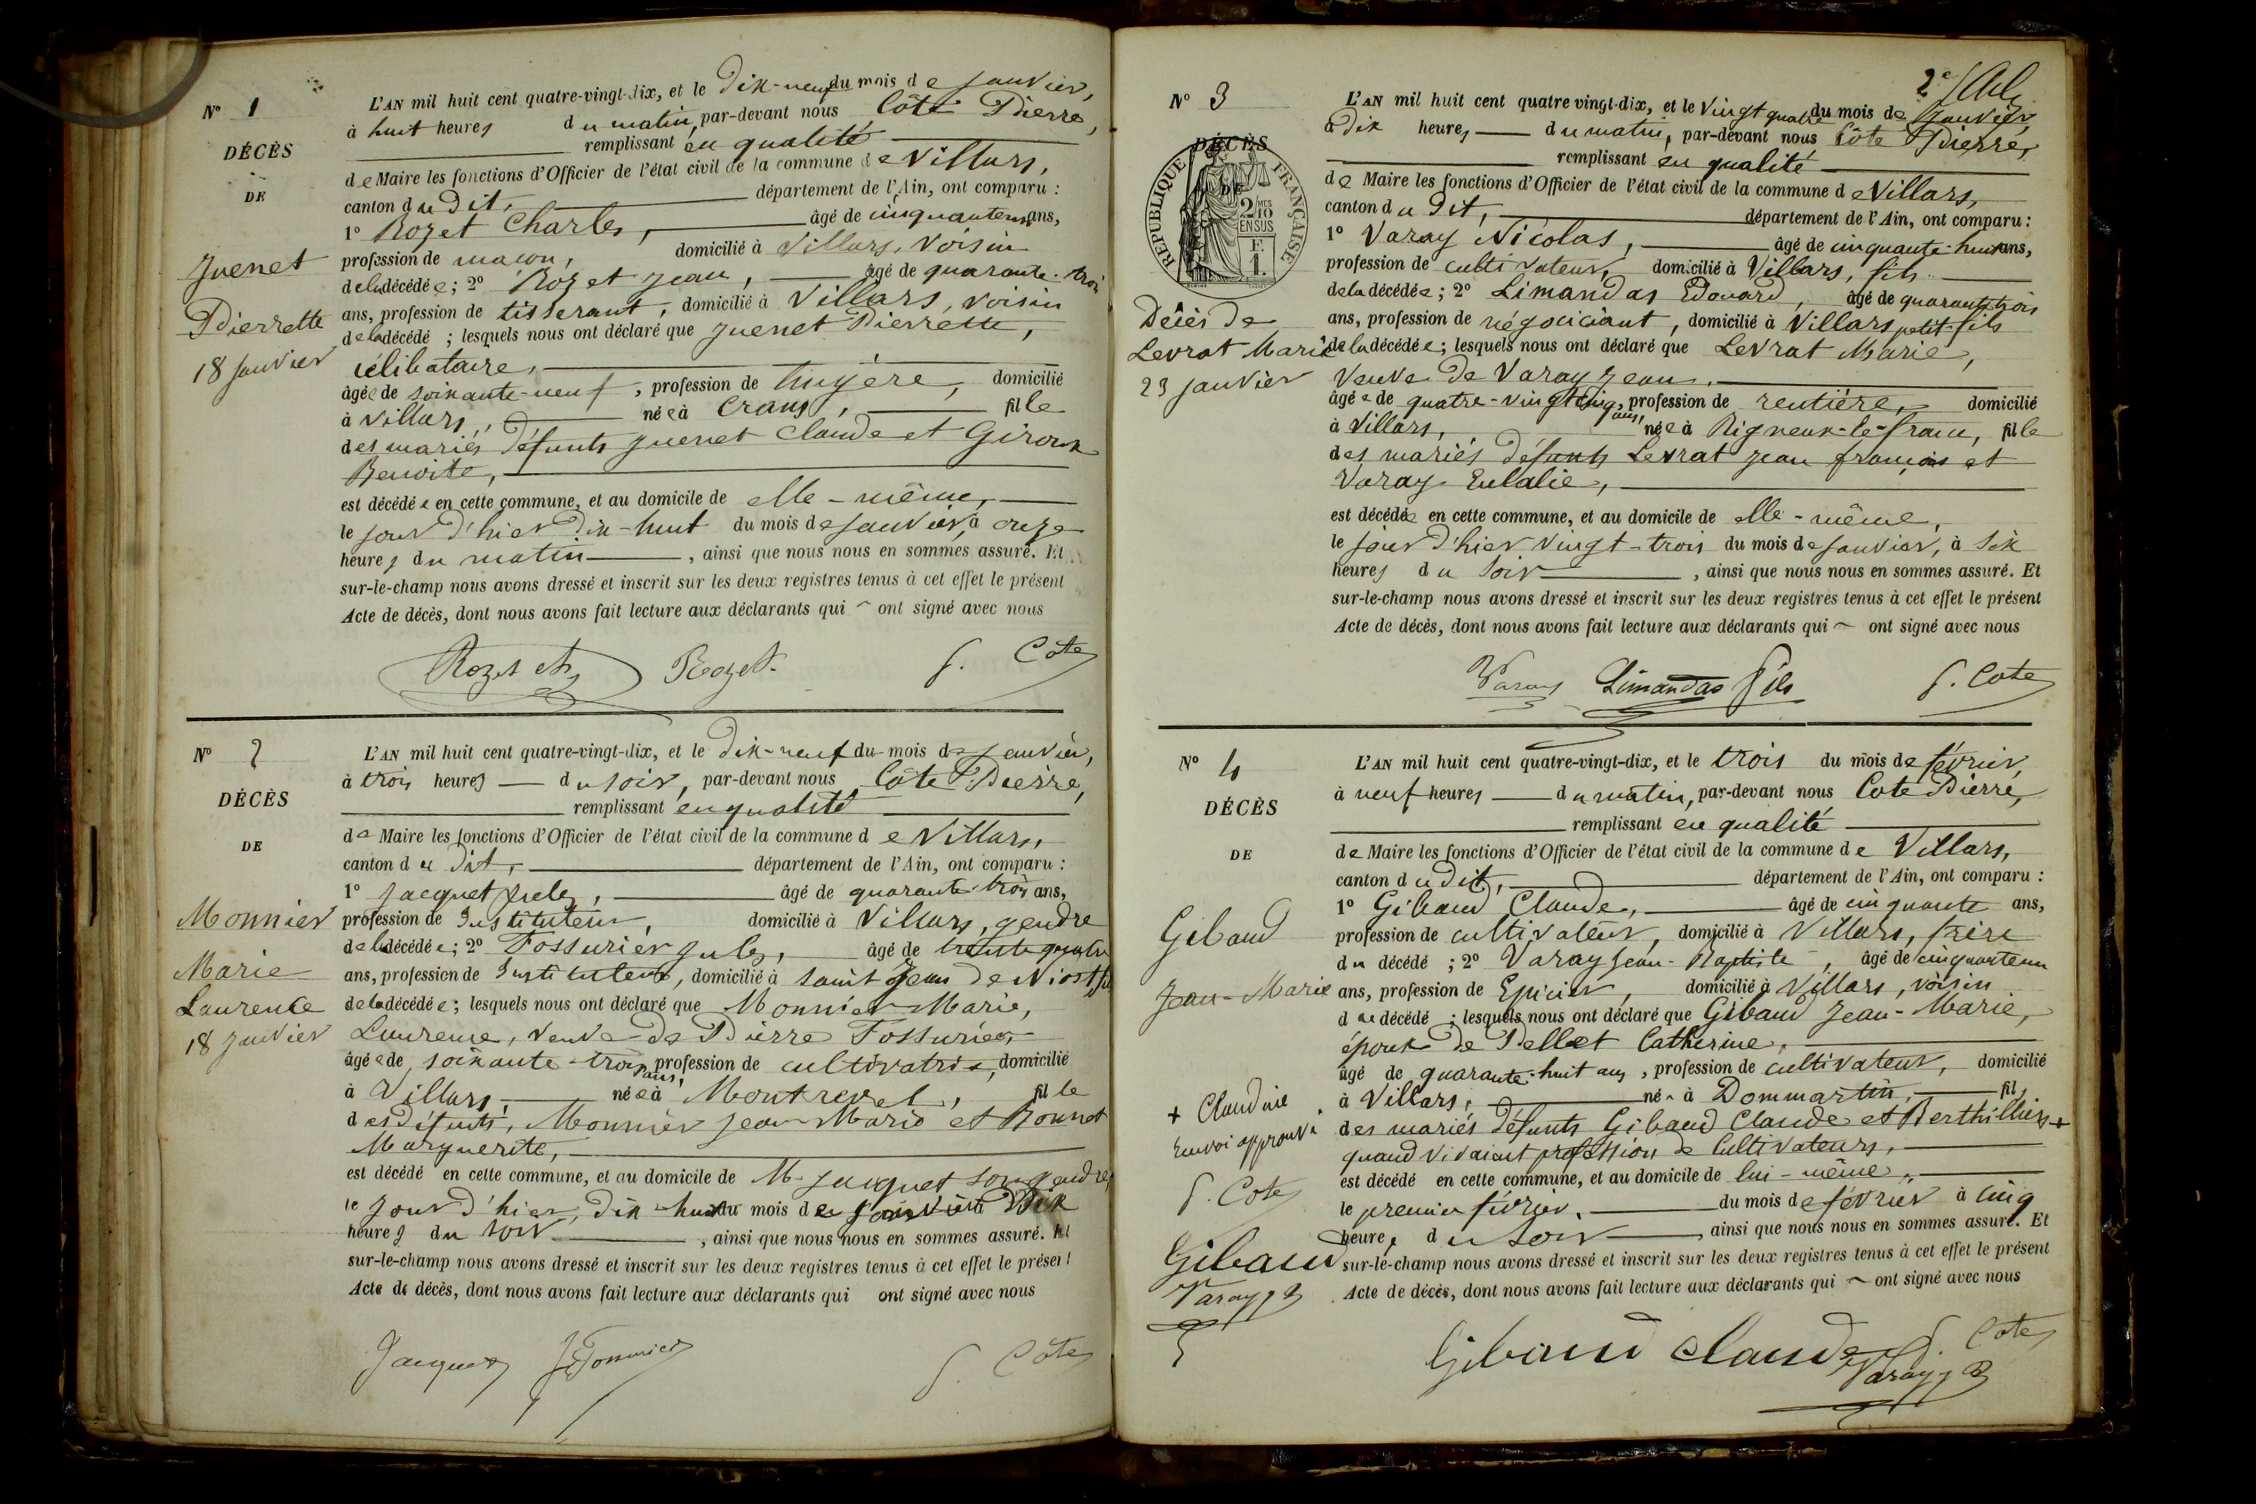 N° 1
DÉCÈS
DE
Juenet
Pierrette
18 Janvier
L'AN mil huit cent quatre-vingt-dix, et le Dix-neuf du mois de Janvier,
à huit heures du matin, par-devant nous Côte Pierre,
remplissant en qualité
de Maire les fonctions d'Officier de l'état civil de la commune de Villars,
canton du dit, département de l'Ain, ont comparu :
1° Rozet Charles, âgé de cinquante ans,
profession de maçon, domicilié à Villars, voisin
de la décédée ; 2° Rozet Jean, âgé de quarante-trois
ans, profession de tisserant, domicilié à Villars, voisin
de la décédé ; lesquels nous ont déclaré que Juenet Pierrette,
célibataire,
âgée de soixante-neuf, profession de lingère, domicilié
à Villars, née à Crans, fille
des mariés défunts Juenet Claude et Giroux
Benoite,
est décédée en cette commune, et au domicile de elle-même,
le jour d'hier dix-huit du mois de Janvier, à onze
heures du matin, ainsi que nous nous en sommes assuré. Et
sur-le-champ nous avons dressé et inscrit sur les deux registres tenus à cet effet le présent
Acte de décès, dont nous avons fait lecture aux déclarants qui ~ ont signé avec nous
Rozet ch Rozet P. Cote
N° 2
DÉCÈS
DE
Monnier
Marie
Laurence
18 Janvier
L'AN mil huit cent quatre-vingt-dix, et le dix-neuf du mois de Janvier,
à trois heures du soir, par-devant nous Côte Pierre,
remplissant en qualité
de Maire les fonctions d'Officier de l'état civil de la commune de Villars,
canton du dit, département de l'Ain, ont comparu :
1° Jacquet Jules, âgé de quarante-trois ans,
profession de Instituteur, domicilié à Villars, gendre
de la décédée ; 2° Fossurier Jules, âgé de trente quatre
ans, profession de Instituteur, domicilié à saint Jean de Niost, fils
de la décédée ; lesquels nous ont déclaré que Monnier Marie,
Laurence, veuve de Pierre Fossurier,
âgée de soixante-trois ans, profession de cultivatrice, domicilié
à Villars, née à Montrevel, fille
des défunts, Monnier Jean-Marie et Bonnet
Marguerite,
est décédé en cette commune, et au domicile de M. Jacquet son gendre,
le jour d'hier, dix-huit du mois de Janvier à Dix
heures du soir, ainsi que nous nous en sommes assuré. Et
sur-le-champ nous avons dressé et inscrit sur les deux registres tenus à cet effet le présent
Acte de décès, dont nous avons fait lecture aux déclarants qui ont signé avec nous
Jacquet P. Cote
2e
N° 3
DÉCÈS
DE
RÉPUBLIQUE FRANÇAISE
2/10 MES
EN SUS
F.
1.
Décès de
Levrat Marie
23 Janvier
L'AN mil huit cent quatre vingt-dix, et le vingt quatre du mois de Janvier
à Dix heures du matin, par-devant nous Côte Pierre,
remplissant en qualité
de Maire les fonctions d'Officier de l'état civil de la commune de Villars,
canton du dit, département de l'Ain, ont comparu :
1° Varay Nicolas, âgé de cinquante-huit ans,
profession de cultivateur, domicilié à Villars, fils
de la décédée ; 2° Limandas Edouard, âgé de quarante trois
ans, profession de négociant, domicilié à Villars, petit-fils
de la décédée ; lesquels nous ont déclaré que Levrat Marie,
veuve de Varay Jean,
âgée de quatre-vingt cinq ans, profession de rentière, domicilié
à Villars, née à Rigneux-le-franc, fille
des mariés défunts Levrat Jean françois et
Varay Eulalie,
est décédée en cette commune, et au domicile de elle-même,
le jour d'hier vingt-trois du mois de Janvier, à six
heures du soir, ainsi que nous nous en sommes assuré. Et
sur-le-champ nous avons dressé et inscrit sur les deux registres tenus à cet effet le présent
Acte de décès, dont nous avons fait lecture aux déclarants qui ~ ont signé avec nous
Varay Limandas fils P. Cote
N° 4
DÉCÈS
DE
Gibaud
Jean-Marie
+ Claudine
renvoi approuvé
P. Cote
Gibaud
Varay J B
L'AN mil huit cent quatre-vingt-dix, et le trois du mois de février,
à neuf heures du matin, par-devant nous Cote Pierre,
remplissant en qualité
de Maire les fonctions d'Officier de l'état civil de la commune de Villars,
canton du dit, département de l'Ain, ont comparu :
1° Gibaud Claude, âgé de cinquante ans,
profession de cultivateur, domicilié à Villars, frère
du décédé ; 2° Varay Jean-Baptiste, âgé de cinquante un
ans, profession de Epicier, domicilié à Villars, voisin
du décédé ; lesquels nous ont déclaré que Gibaud Jean-Marie,
époux de Pellet Catherine,
âgé de quarante-huit ans, profession de cultivateur, domicilié
à Villars, né à Dommartin, fils
des mariés défunts Gibaud Claude et Berthillier +
quand vivaient profession de Cultivateurs,
est décédé en cette commune, et au domicile de lui-même,
le premier février, du mois de février à cinq
heures du soir, ainsi que nous nous en sommes assuré. Et
sur-le-champ nous avons dressé et inscrit sur les deux registres tenus à cet effet le présent
Acte de décès, dont nous avons fait lecture aux déclarants qui ~ ont signé avec nous
Gibaud Claude P. Cote
Varay J B